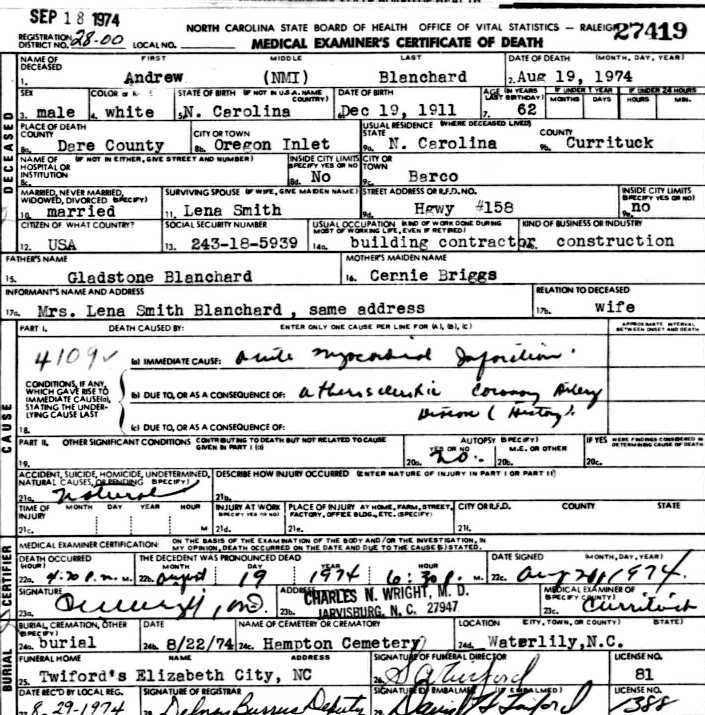 SEP 18 1974
NORTH CAROLINA STATE BOARD OF HEALTH OFFICE OF VITAL STATISTICS – RALEIGH 27419
REGISTRATION DISTRICT NO. 28-00 LOCAL NO.
MEDICAL EXAMINER'S CERTIFICATE OF DEATH
DECEASED
NAME OF DECEASED FIRST MIDDLE LAST DATE OF DEATH (MONTH, DAY, YEAR)
1. Andrew (NMI) Blanchard 2. Aug 19, 1974
SEX COLOR STATE OF BIRTH (IF NOT IN U.S.A. NAME COUNTRY) DATE OF BIRTH AGE (IN YEARS LAST BIRTHDAY) IF UNDER 1 YEAR MONTHS DAYS IF UNDER 24 HOURS HOURS MIN.
3. male 4. white 5. N. Carolina 6. Dec 19, 1911 7. 62
PLACE OF DEATH COUNTY CITY OR TOWN USUAL RESIDENCE (WHERE DECEASED LIVED) STATE COUNTY
8a. Dare County 8b. Oregon Inlet 9a. N. Carolina 9b. Currituck
NAME OF HOSPITAL OR INSTITUTION (IF NOT IN EITHER, GIVE STREET AND NUMBER) INSIDE CITY LIMITS (SPECIFY YES OR NO) CITY OR TOWN
8c. 8d. No 9c. Barco
MARRIED, NEVER MARRIED, WIDOWED, DIVORCED (SPECIFY) SURVIVING SPOUSE (IF WIFE, GIVE MAIDEN NAME) STREET ADDRESS OR R.F.D. NO. INSIDE CITY LIMITS (SPECIFY YES OR NO)
10. married 11. Lena Smith 9d. Hgwy #158 9e. no
CITIZEN OF WHAT COUNTRY? SOCIAL SECURITY NUMBER USUAL OCCUPATION (KIND OF WORK DONE DURING MOST OF WORKING LIFE, EVEN IF RETIRED) KIND OF BUSINESS OR INDUSTRY
12. USA 13. 243-18-5939 14a. building contractor construction
FATHER'S NAME MOTHER'S MAIDEN NAME
15. Gladstone Blanchard 16. Cernie Briggs
INFORMANT'S NAME AND ADDRESS RELATION TO DECEASED
17a. Mrs. Lena Smith Blanchard, same address 17b. wife
CAUSE
PART I. DEATH CAUSED BY: ENTER ONLY ONE CAUSE PER LINE FOR (A), (B), (C) APPROXIMATE INTERVAL BETWEEN ONSET AND DEATH
4109 (a) IMMEDIATE CAUSE: Acute Myocardial Infarction
CONDITIONS, IF ANY, WHICH GAVE RISE TO IMMEDIATE CAUSE (a), STATING THE UNDERLYING CAUSE LAST
(b) DUE TO, OR AS A CONSEQUENCE OF: Atherosclerotic Coronary Artery
Disease (History)
18. (c) DUE TO, OR AS A CONSEQUENCE OF:
PART II. OTHER SIGNIFICANT CONDITIONS CONTRIBUTING TO DEATH BUT NOT RELATED TO CAUSE GIVEN IN PART I (a) AUTOPSY (SPECIFY) YES OR NO M.E. OR OTHER IF YES WERE FINDINGS CONSIDERED IN DETERMINING CAUSE OF DEATH
19. 20a. No. 20b. 20c.
ACCIDENT, SUICIDE, HOMICIDE, UNDETERMINED, NATURAL CAUSES, OR PENDING (SPECIFY) DESCRIBE HOW INJURY OCCURRED (ENTER NATURE OF INJURY IN PART I OR PART II)
21a. Natural 21b.
TIME OF INJURY MONTH DAY YEAR HOUR INJURY AT WORK (SPECIFY YES OR NO) PLACE OF INJURY AT HOME, FARM, STREET, FACTORY, OFFICE BLDG., ETC. (SPECIFY) CITY OR R.F.D. COUNTY STATE
21c. M 21d. 21e. 21f.
CERTIFIER
MEDICAL EXAMINER CERTIFICATION: ON THE BASIS OF THE EXAMINATION OF THE BODY AND/OR THE INVESTIGATION, IN MY OPINION, DEATH OCCURRED ON THE DATE AND DUE TO THE CAUSE(S) STATED.
DEATH OCCURRED (HOUR) THE DECEDENT WAS PRONOUNCED DEAD MONTH DAY YEAR HOUR DATE SIGNED (MONTH, DAY, YEAR)
22a. 4:20 P. M. 22b. August 19 1974 6:30 P. M. 22c. Aug 20, 1974.
SIGNATURE ADDRESS CHARLES N. WRIGHT, M. D. MEDICAL EXAMINER OF (SPECIFY COUNTY)
23a. 23b. JARVISBURG, N. C. 27947 23c. Currituck
BURIAL
BURIAL, CREMATION, OTHER (SPECIFY) DATE NAME OF CEMETERY OR CREMATORY LOCATION (CITY, TOWN, OR COUNTY) (STATE)
24a. burial 24b. 8/22/74 24c. Hampton Cemetery 24d. Waterlily, N.C.
FUNERAL HOME NAME ADDRESS SIGNATURE OF FUNERAL DIRECTOR LICENSE NO.
25. Twiford's Elizabeth City, NC 26. 81
DATE REC'D BY LOCAL REG. SIGNATURE OF REGISTRAR SIGNATURE OF EMBALMER (IF EMBALMED) LICENSE NO.
8-29-1974 Burrus Deputy 388